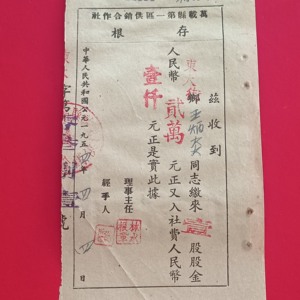 萬載縣第一區供銷合作社
存根
茲收到
鄉王炳炎同志繳來 股股金
人民幣貳萬元正又入社費人民幣
壹仟元正是實此據
理事主任
經手人
中華人民共和國公元一九五四年四月 日
字第 號